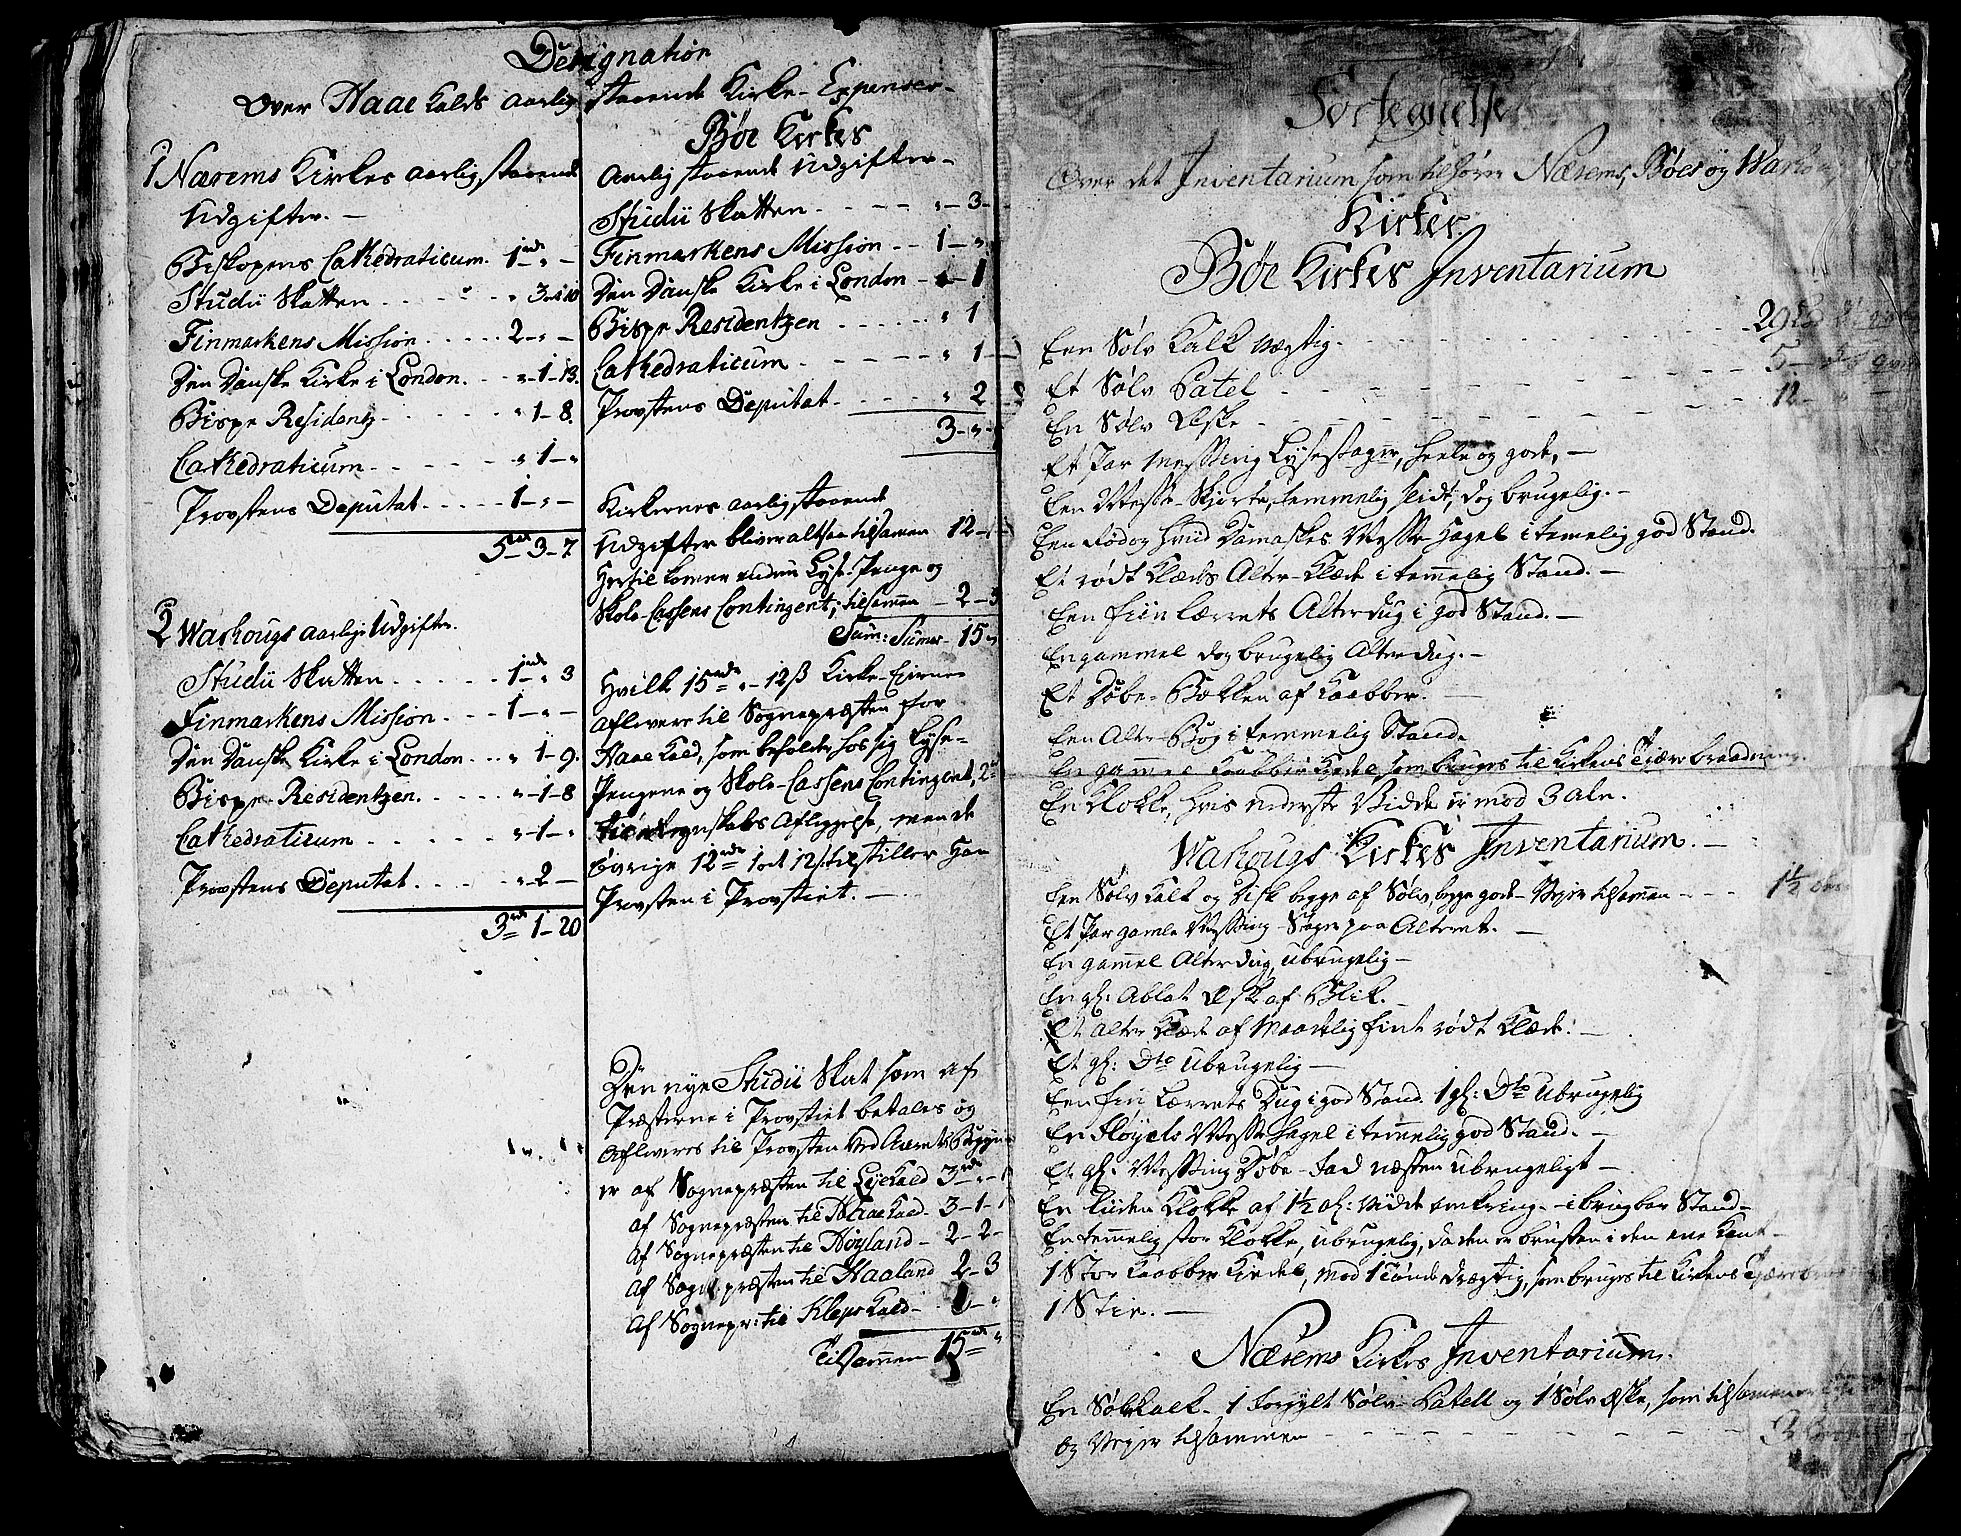 Designation
Over Haae Kalds aarlig staaende Kirke-Expenser-
1 Nærems Kirkes aarlig staaende
Udgifter. -
Biskopens Cathedraticum. 1 rd „ -
Studii Skatten . . . . „ 3-10
Finmarkens Mission . . . . . 2-„-
Den Danske Kirke i London. . . „-1-13.
Bispe Residentz . . . . . „ 1-8.
Cathedraticum . . . . . „ 1-„
Provstens Deputat . . . . . 1-„-
5 rd 3-7
2 Warhougs aarlige Udgifter.
Studii Skatten . . . . . . 1 rd „ 3
Finmarkens Mission . . . 1-„-
Den Danske Kirke i London . . . „ 1-9.
Bispe-Residentzen . . . . . „-1-8
Cathedraticum . . . . . . „-1-„
Provstens Deputat . . . . . „-2-
3 rd 1-20
Bøe Kirkes
Aarlig staaende Udgifter-
Studii Skatten . . . . „ 3-
Finmarkens Mission . . 1-„
Den Danske Kirke i London - 1
Bispe Residentzen . . . . . „ 1
Cathedraticum - - - - - „ 1-
Provstens Deputat . . . . . „ 2
3-„-
Kirkernes aarlig staaende
Udgifter bliver altsaa tilsamen 12-1
Hertil kommer endnu Lyse-Penge og
Skole-Cassens Contingent, tilsammen - 2-3
Sum: Sumar 15 „
Hvilke 15 rd „-12 ß Kirke-Eierne
afleverer til Sognepræsten for
Haae Kald, som beholder hos sig Lyse-
Pengene og Skole-Cassens Contingent, 2
Regnskabs Aflæggelse, men de
øvrige 12 rd 1 ort 12 ß tilstiller Han
Provsten i Provstiet. -
Den nye Studii Skat som af
Præsterne i Provstiet betales og
afleveres til Provsten ved Aarets
er af Sognepræsten til Lyekald 3 rd „-
af Sognepræsten til Haae Kald- 3-1-
af Sognepræsten til Høyland - 2-2-
af Sognepræsten til Haaland 2-3
af Sognepr: til Kleps Kald- . 1-„
Tilsammen 15 rd „
Fortegnelse
Over det Inventarium som tilhører Nærems, Bøes og Warhougs
Kirker.
Bøe Kirkes Inventarium
Een Sølv Kalk vægtig. - - - - 29 Lod
Et Sølv Patel - - - - 5-
En Sølv Æske - - - - 12-
Et Par Messing Lysestager, heele og gode, -
Een Messe-Skjorte, temmelig slidt, dog brugelig. -
Een Rød og hviid Damaskes Messe Hagel i temelig god Stand.
Et rødt Klædes Alter-Klæde i temmelig Stand. -
Een fiin Lærrets Alterdug i god Stand. -
En gammel dog brugelig Alterdug. -
Et Døbe-Bækken af Kaabber. -
Een Alter-Bog i temmelig Stand.
En gammel Kaabber Kiedel som bruges til Kirkens Tjærebraadning.
En Klokke, hvis nederste Vidde er mod 3 Aln.
Warhougs Kirkes Inventarium. -
Een Sølv Kalk og Disk begge af Sølv, begge gode - Vejer tilsammen - - - 1½
Et Par gamle Messing-Stager paa Alteret. -
En gammel Alterdug, ubrugelig -
En gl: Ablat Æske af Blik. -
Et Alter Klæde af maadelig fint rødt Klæde. -
Et gl: Dto ubrugelig -
Een fiin Lærrets Dug i god Stand. 1 gl: Dto Ubrugelig
En Fløyels Messe Hagel i temmelig god Stand. -
Et gl: Messing Døbe-Fad næsten ubrugeligt -
En liiden Klokke af 1½ al: Vidde omkring. - i brugbar Stand -
En temmelig stor Klokke, ubrugelig, da den er brusten i den ene Kant -
1 Stor Kaabber Kiedel, mod 1 Tønde drægtig, som bruges til Kirkens Tjære
1 Stie. -
Nærems Kirkes Inventarium.
En Sølvkalk - 1 Forgylt Sølv-Patell og 1 Sølv Æske, som tilsammen
og Vejer tilsammen - - - -